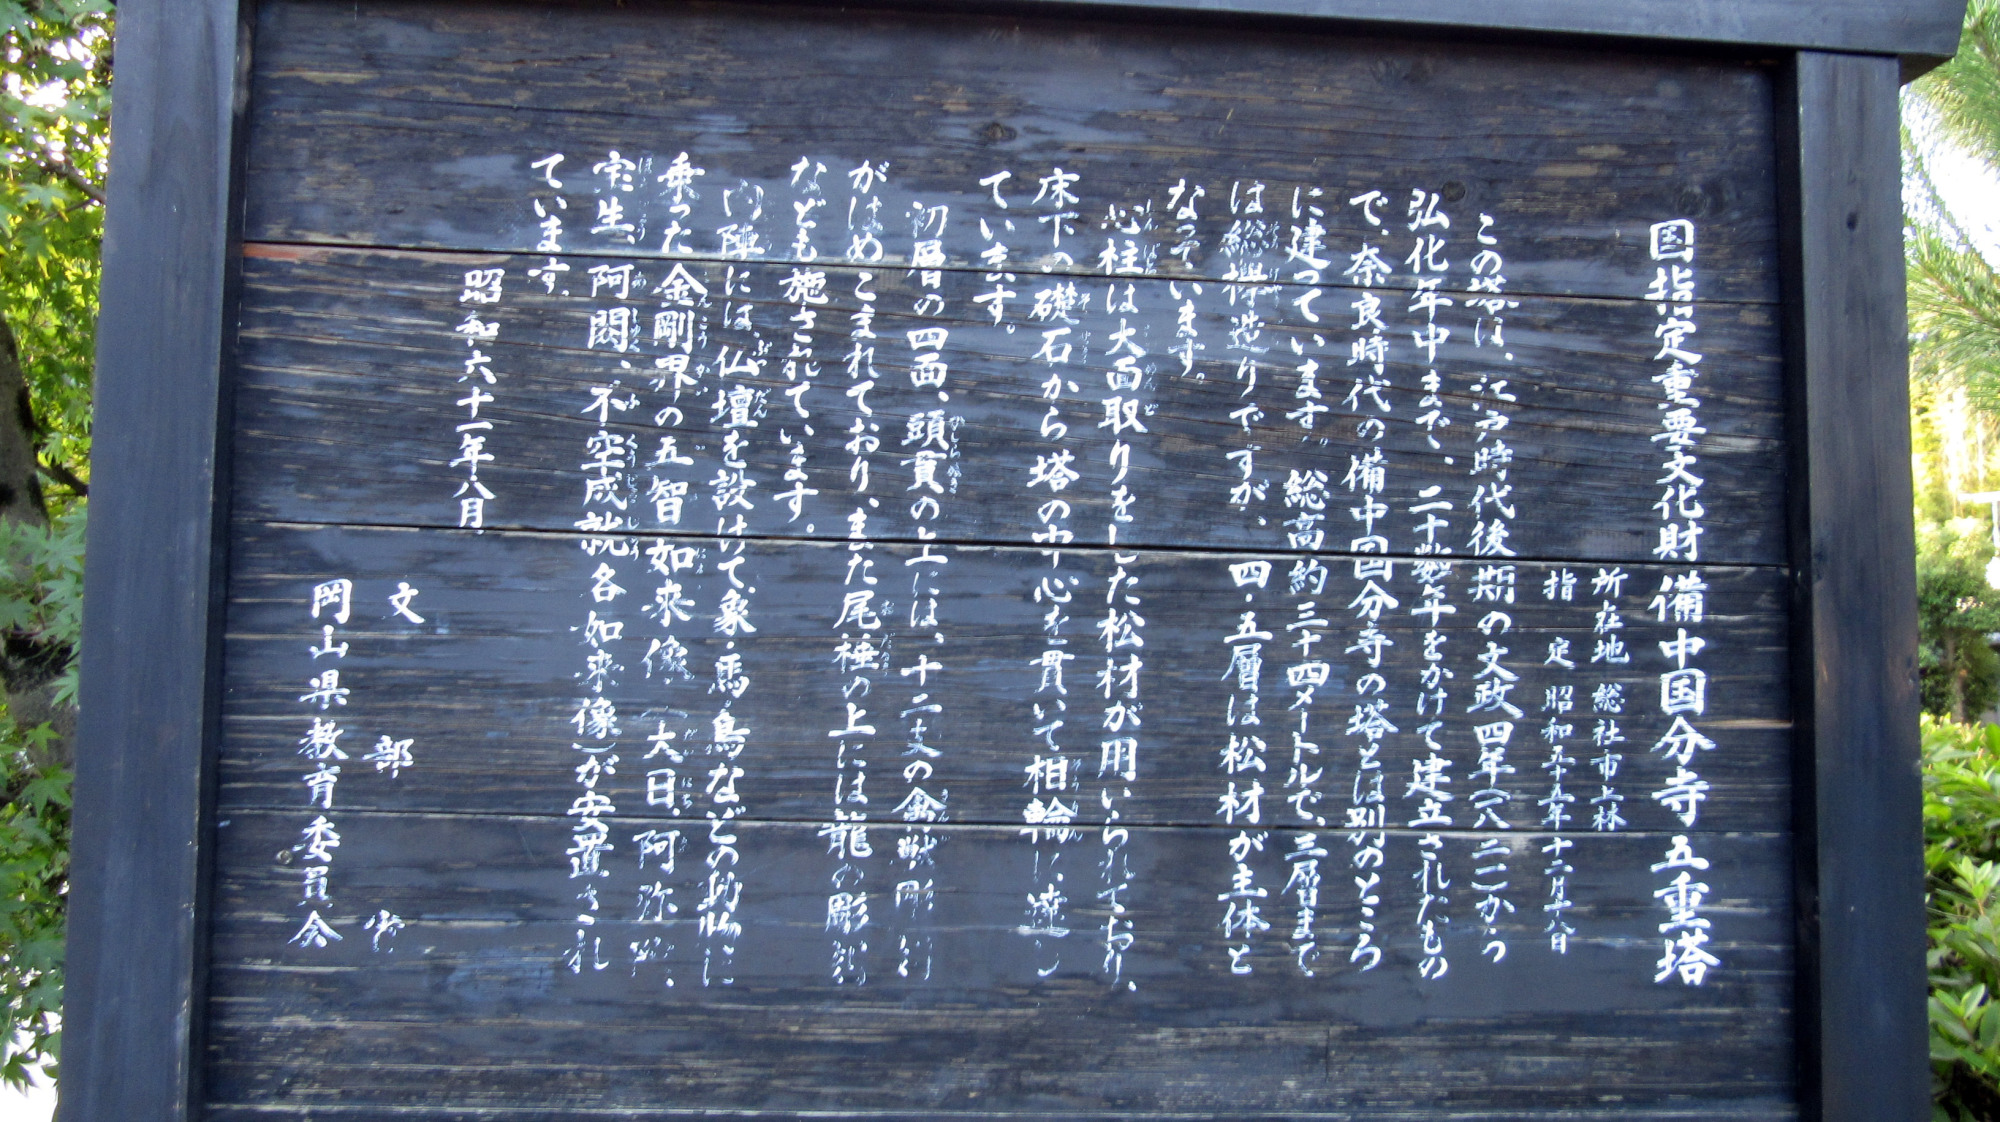 国指定重要文化財 備中国分寺五重塔
所在地 総社市上林
指 定 昭和五十五年十二月十八日
この塔は、江戸時代後期の文政四年(一八二一)から
弘化年中まで、二十数年をかけて建立されたもの
で、奈良時代の備中国分寺の塔とは別のところ
に建っています。総高約三十四メートルで、三層まで
は総欅造りですが、四・五層は松材が主体と
なっています。
心柱は大面取りをした松材が用いられており、
床下の礎石から塔の中心を貫いて相輪に達し
ています。
初層の四面、頭貫の上には、十二支の
がはめこまれており、また尾棰の上には龍の彫刻
なども施されています。
内陣には、仏壇を設けて、象・馬・鳥などの動物に
乗った金剛界の五智如来像(大日、阿弥陀、
宝生、阿閦、不空成就各如来像)が安置され
ています。
昭和六十一年八月
文 部 省
岡山県教育委員会